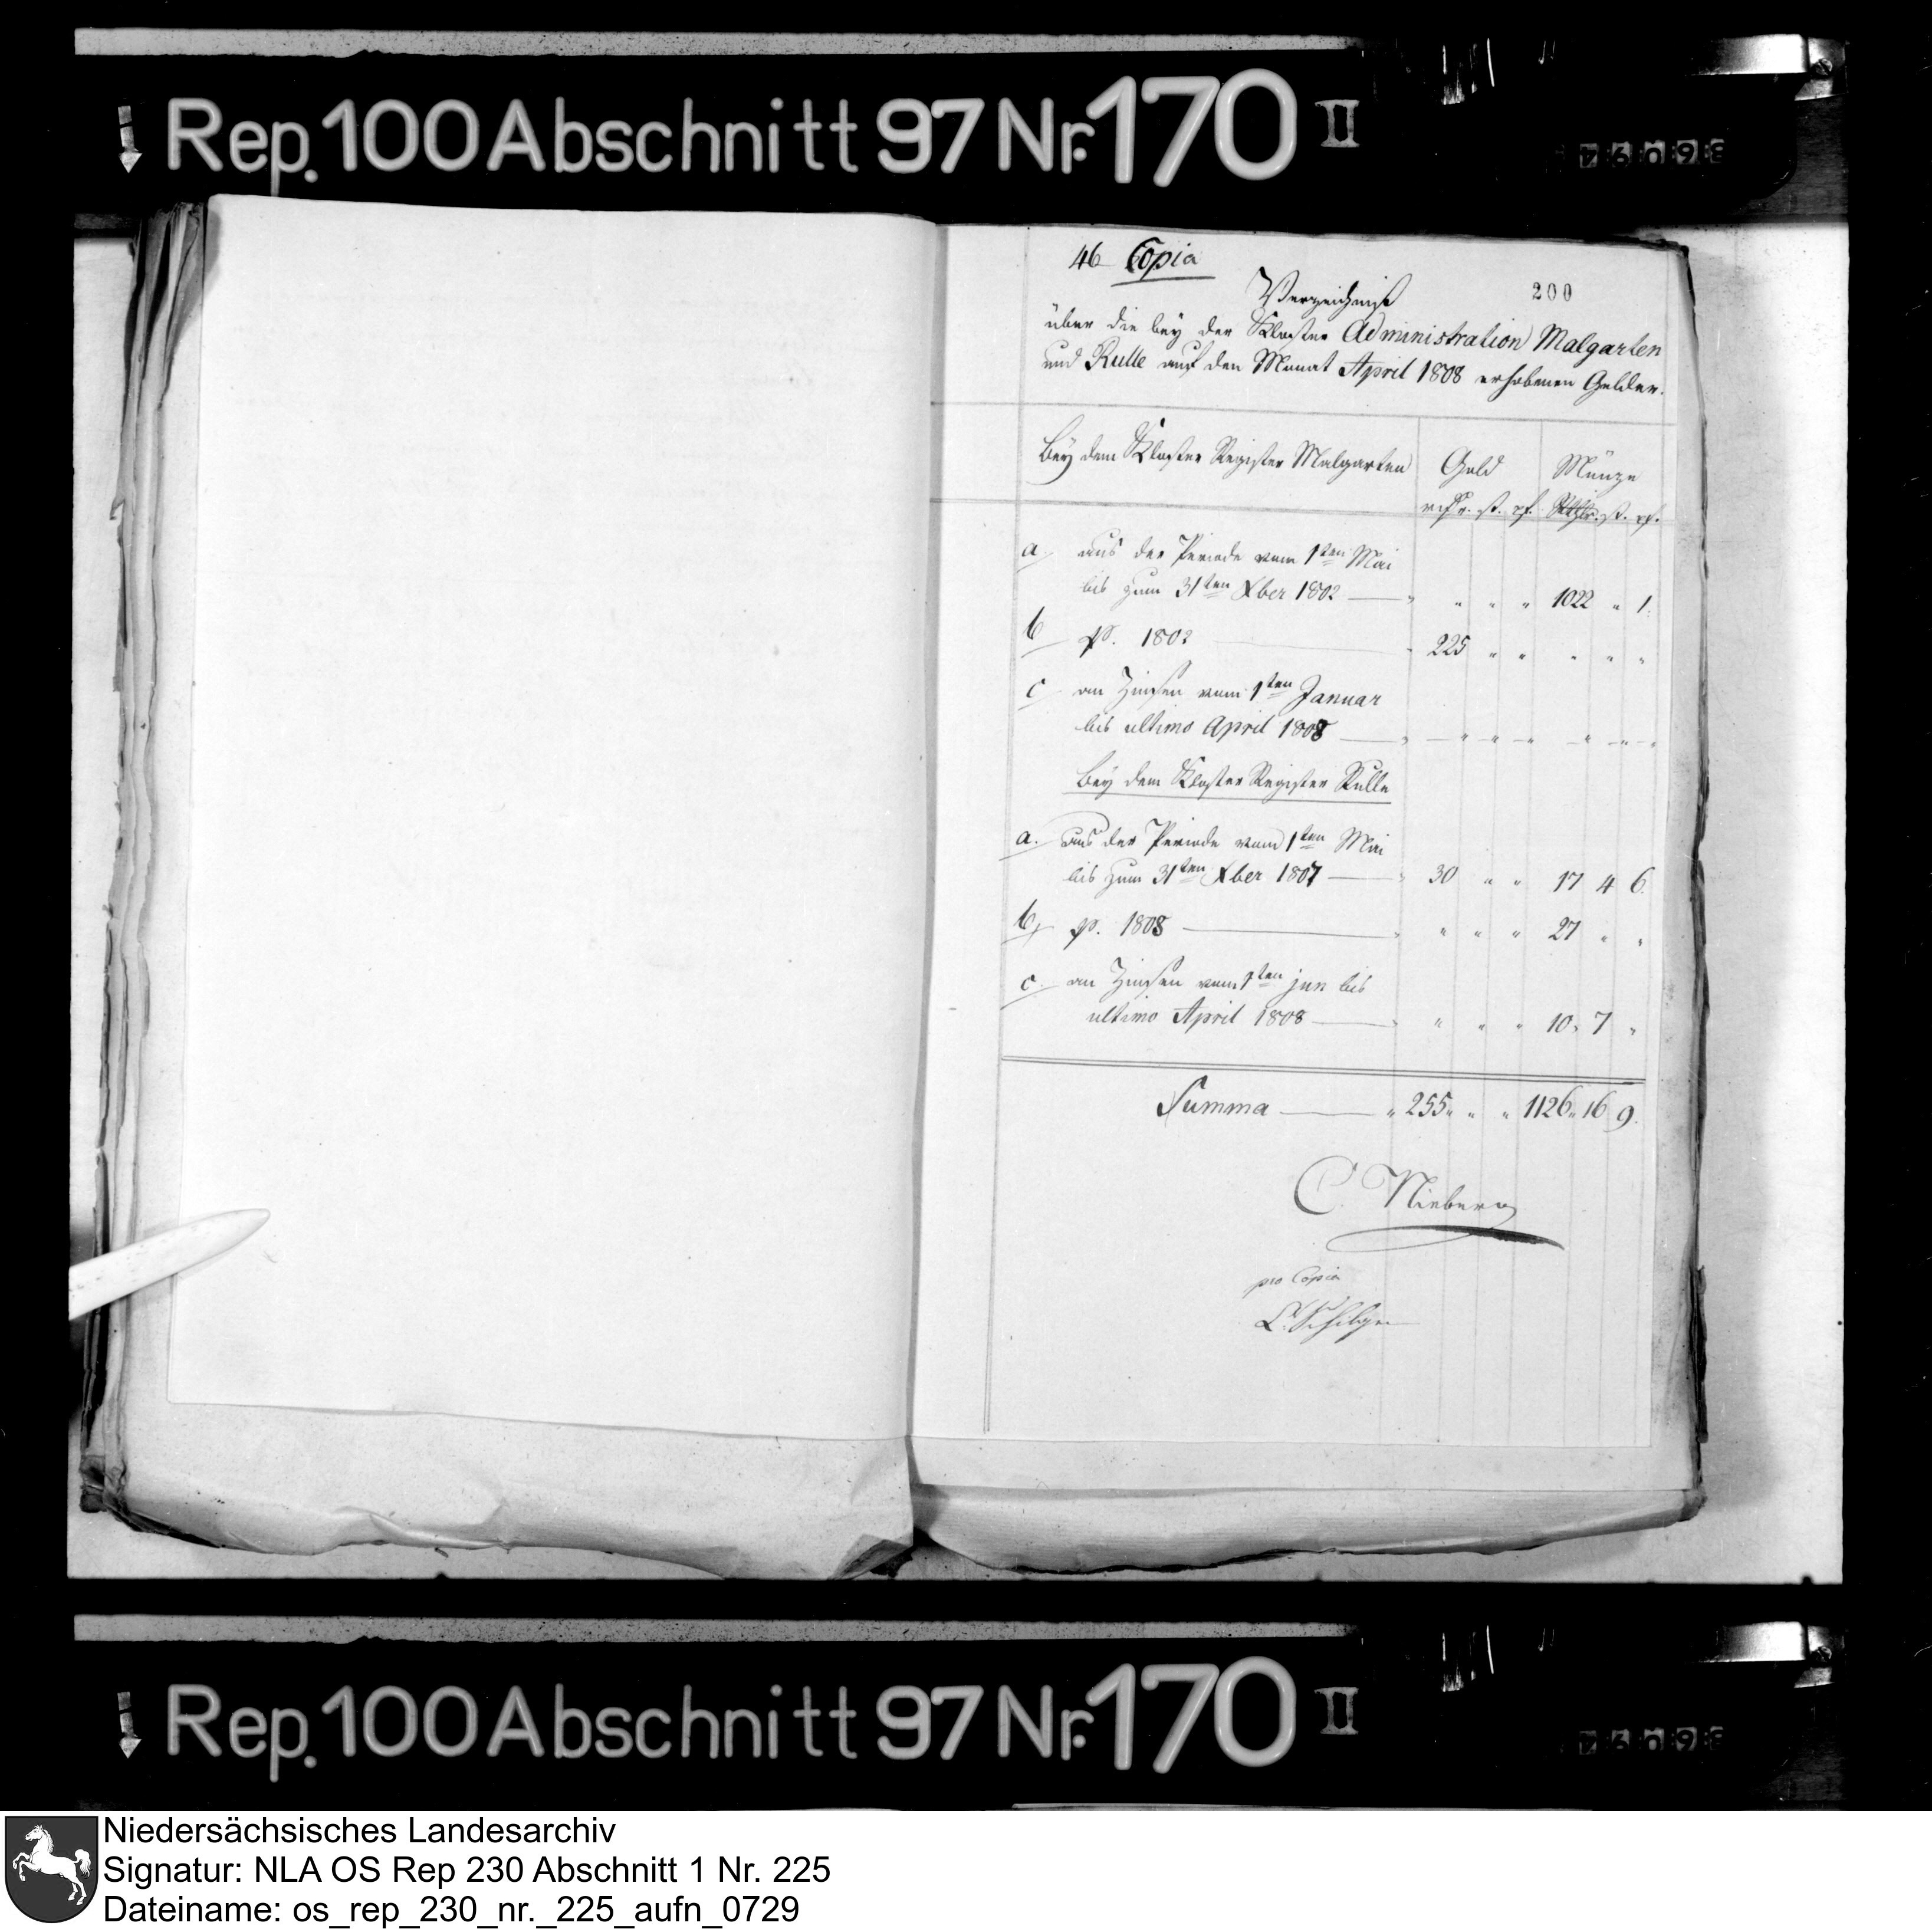 Rep. 100 Abschnitt 97 Nr. 170 II
46 Copia
200
Verzeichniß
über die bey der Kloster Administration Malgarten
und Rulle auf den Monat April 1808 erhobenen Gelder.
Bey dem Kloster Register Malgarten Gold Münze
rthr. ß. pf. ß. pf.
a. aus der Periode vom 1ten Mai
bis zum 31ten Xber 1802 — " " " " 1022 " 1.
b p. 1802 " 225 " " " " "
c an Zinsen vom 1ten Januar
bis ultimo April 1808 — " " " " " " "
Bey dem Kloster Register Rulle
a. aus der Periode vom 1ten Mai
bis zum 31ten Xber 1807 — " 30 " " 17 4 6.
b, p. 1808 — " " " " 27 " "
c. an Zinsen vom 1ten jan bis
ultimo April 1808 — " " " " 10 " 7 "
Summa — " 255 " " " 1126 " 16 9.
C. Niebern
pro Copia
Rep. 100 Abschnitt 97 Nr. 170 II
Niedersächsisches Landesarchiv
Signatur: NLA OS Rep 230 Abschnitt 1 Nr. 225
Dateiname: os_rep_230_nr._225_aufn_0729